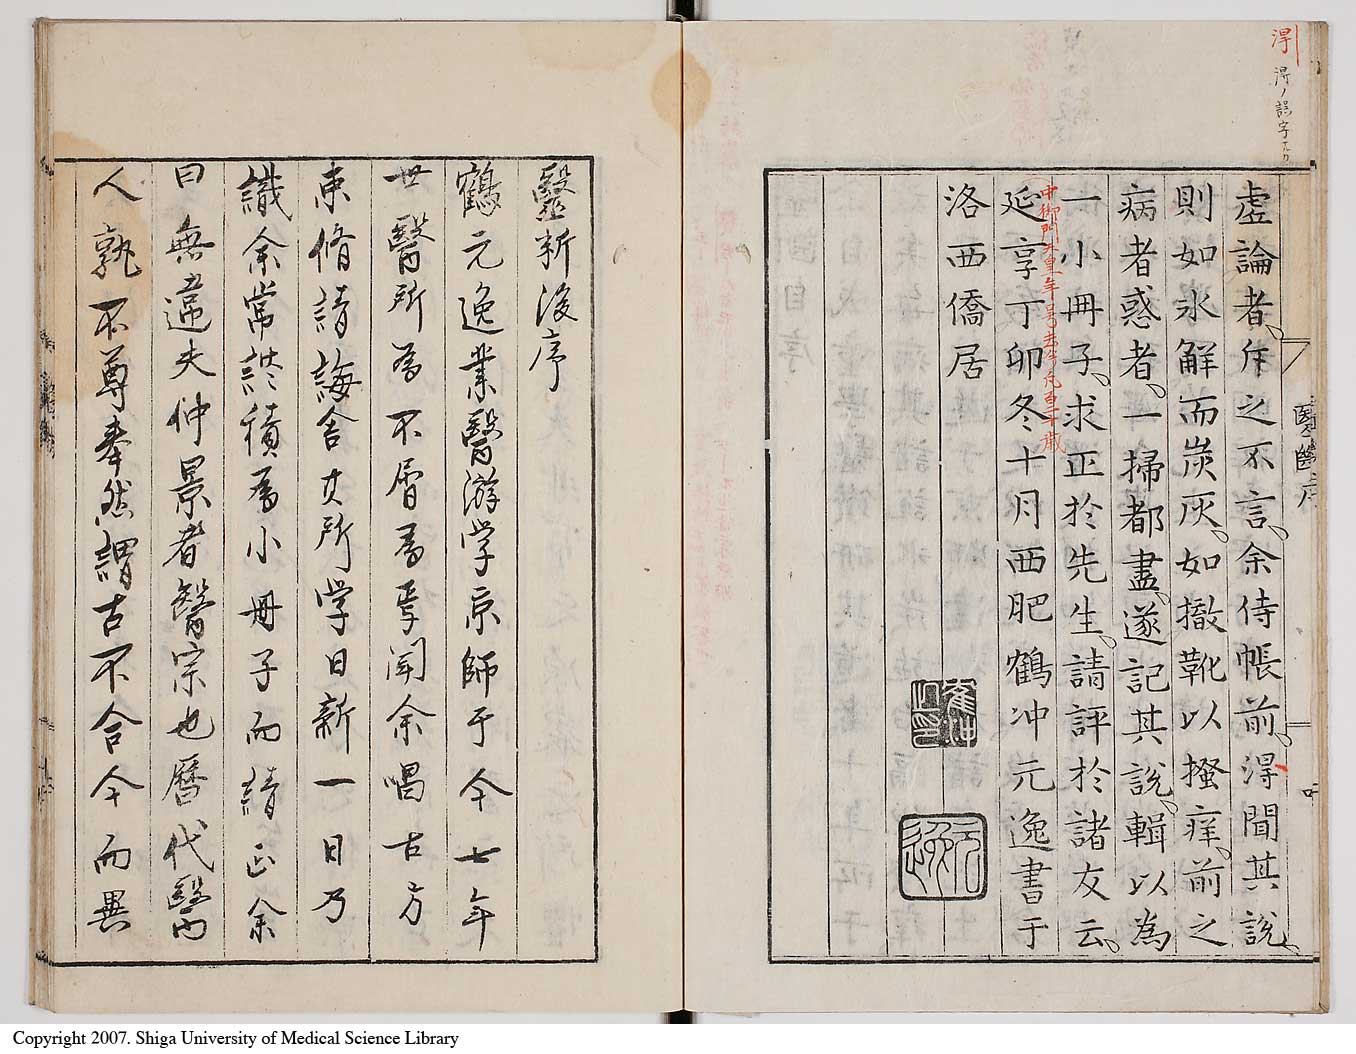 淂
淂ノ誤字ナリ
虚論者、斥之不言、余侍帳前、淂聞其說、
則如氷解而炭灰。如撤靴以搔痒、前之
病者惑者、一掃都盡、遂記其說、輯以為
一小冊子、求正於先生、請評於諸友云、
中御門天皇年号去今凡百二十歲
延享丁卯冬十月西肥鶴冲元逸書于
洛西僑居
醫斷序
醫斷後序
鶴元逸業醫游学京師于今七年
世醫所為不屑為焉聞余唱古方
束脩請誨舍其所学日新一日乃
識余常談積為小冊子而請正余
曰無違夫仲景者醫宗也曆代醫
人孰不尊奉然謂古不合今而異
Copyright 2007. Shiga University of Medical Science Library